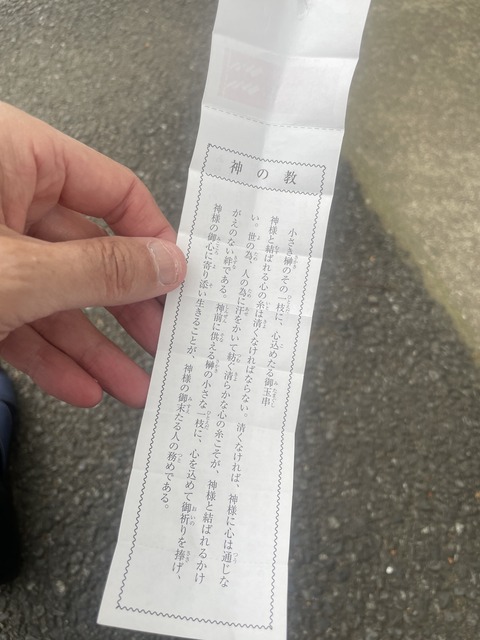 神の教
小さき榊のその一枝に、心込めたる御玉串
神様と結ばれる心の糸は清くなければならない。清くなければ、神様に心は通じな
い。世の為、人の為に汗をかいて紡ぐ清らかな心の糸こそが、神様と結ばれるかけ
がえのない絆である。神前に供える榊の小さな一枝に、心を込めて御祈りを捧げ、
神様の御心に寄り添い生きることが、神様の御末たる人の務めである。